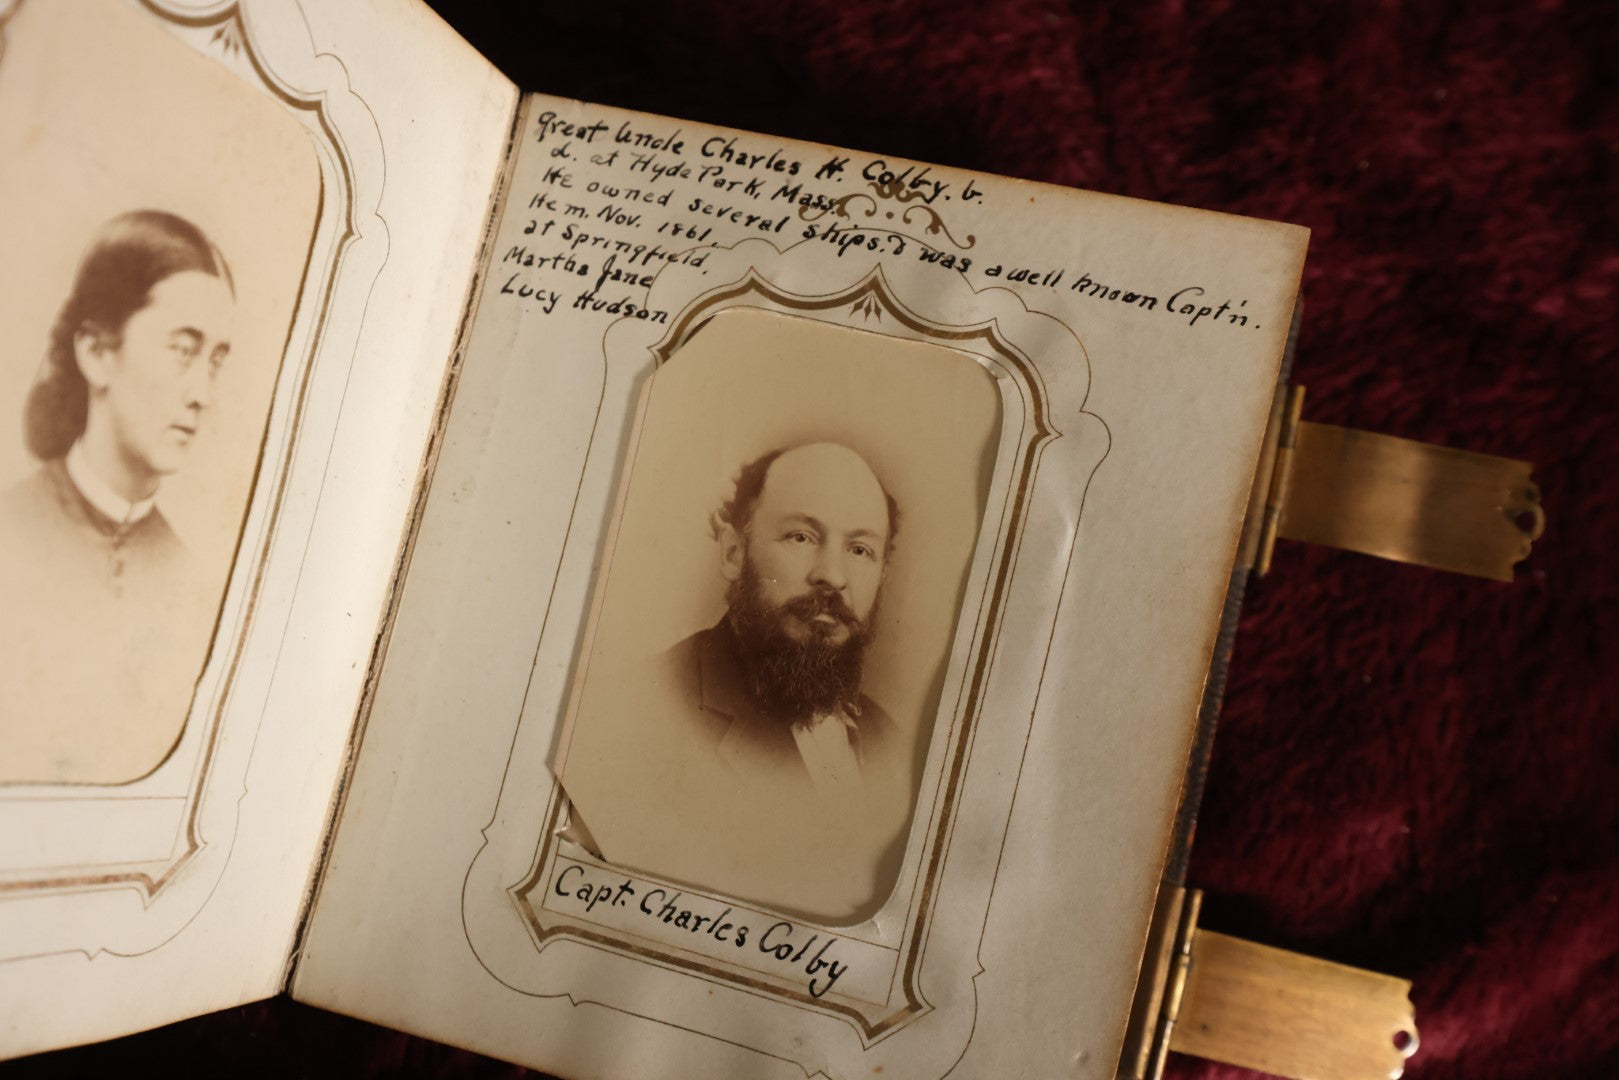 Great Uncle Charles H. Colby. b.
d. at Hyde Park, Mass.
He owned several ships. & was a well known Capt'n.
He m. Nov. 1861.
at Springfield,
Martha Jane
Lucy Hudson
Capt. Charles Colby